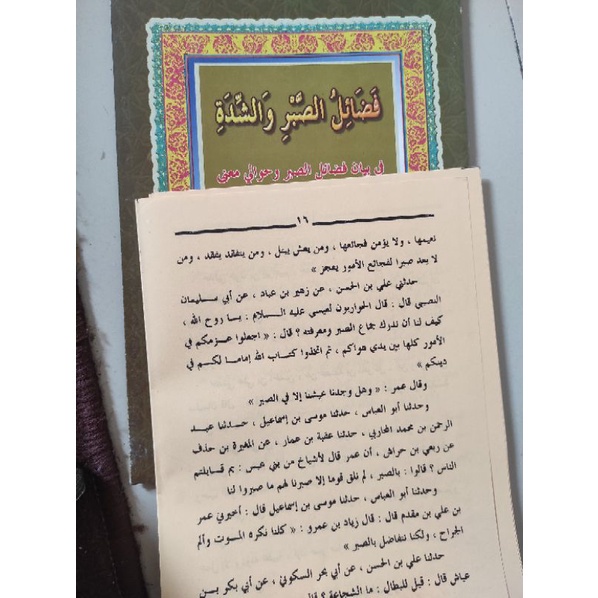 فَضَائِلُ الصَّبْرِ وَالشِّدَةِ
في بيان فضائل الصبر وحوالي معنى
١٦
نعيمها ، ولا يؤمن فجائعها ، ومن يعش يبتل ، ومن يتفقد يفقد ، ومن
لا يعد صبرا لفجائع الأمور يعجز »
حدثني علي بن الحسن ، عن زهير بن عباد ، عن أبي سليمان
النصيبي قال : قال الحواريون لعيسى عليه السلام : يا روح الله ،
كيف لنا أن ندرك جماع الصبر ومعرفته ؟ قال : « اجعلوا عزمكم في
الأمور كلها بين يدي هواكم ، ثم اتخذوا كتاب الله إماما لكم في
دينكم »
وقال عمر : « وهل وجدنا عيشنا إلا في الصبر »
وحدثنا أبو العباس ، حدثنا موسى بن إسماعيل ، حدثنا عبد
الرحمن بن محمد المحاربي ، حدثنا عقبة بن عمار ، عن المغيرة بن حذف
عن ربعي بن حراش ، أن عمر قال لأشياخ من بني عبس : بم قابلتم
الناس ؟ قالوا : بالصبر ، لم نلق قوما إلا صبرنا لهم ما صبروا لنا
وحدثنا أبو العباس ، حدثنا موسى بن إسماعيل قال : أخبرني عمر
بن علي بن مقدم قال : قال زياد بن عمرو : « كلنا نكره الموت وألم
الجراح ، ولكنا نتفاضل بالصبر »
حدثنا علي بن الحسن ، عن أبي بحر السكوني ، عن أبي بكر بن
عياش قال : قيل للبطال : ما الشجاعة ؟ قال